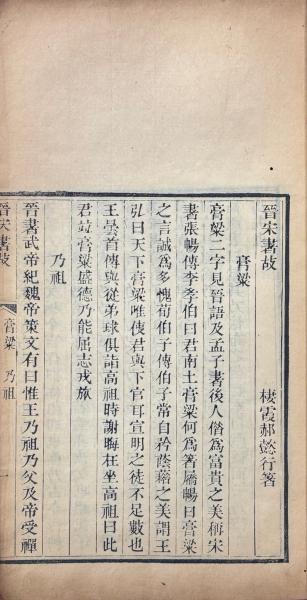 晉宋書故
棲霞郝懿行箸
膏粱
膏粱二字見晉語及孟子書後人偕為富貴之美稱宋
書張暢傳李孝伯曰君南土膏粱何為箸屩暢曰膏粱
之言誠為多愧荀伯子傳伯子常自矜蔭藉之美謂王
弘曰天下膏粱唯使君與下官耳宣明之徒不足數也
王曇首傳與從弟球俱詣高祖時謝晦在坐高祖曰此
君竝膏粱盛德乃能屈志戎旅
乃祖
晉書武帝紀魏帝策文有曰惟王乃祖乃父及帝受禪
晉宋書故
膏粱 乃祖
一